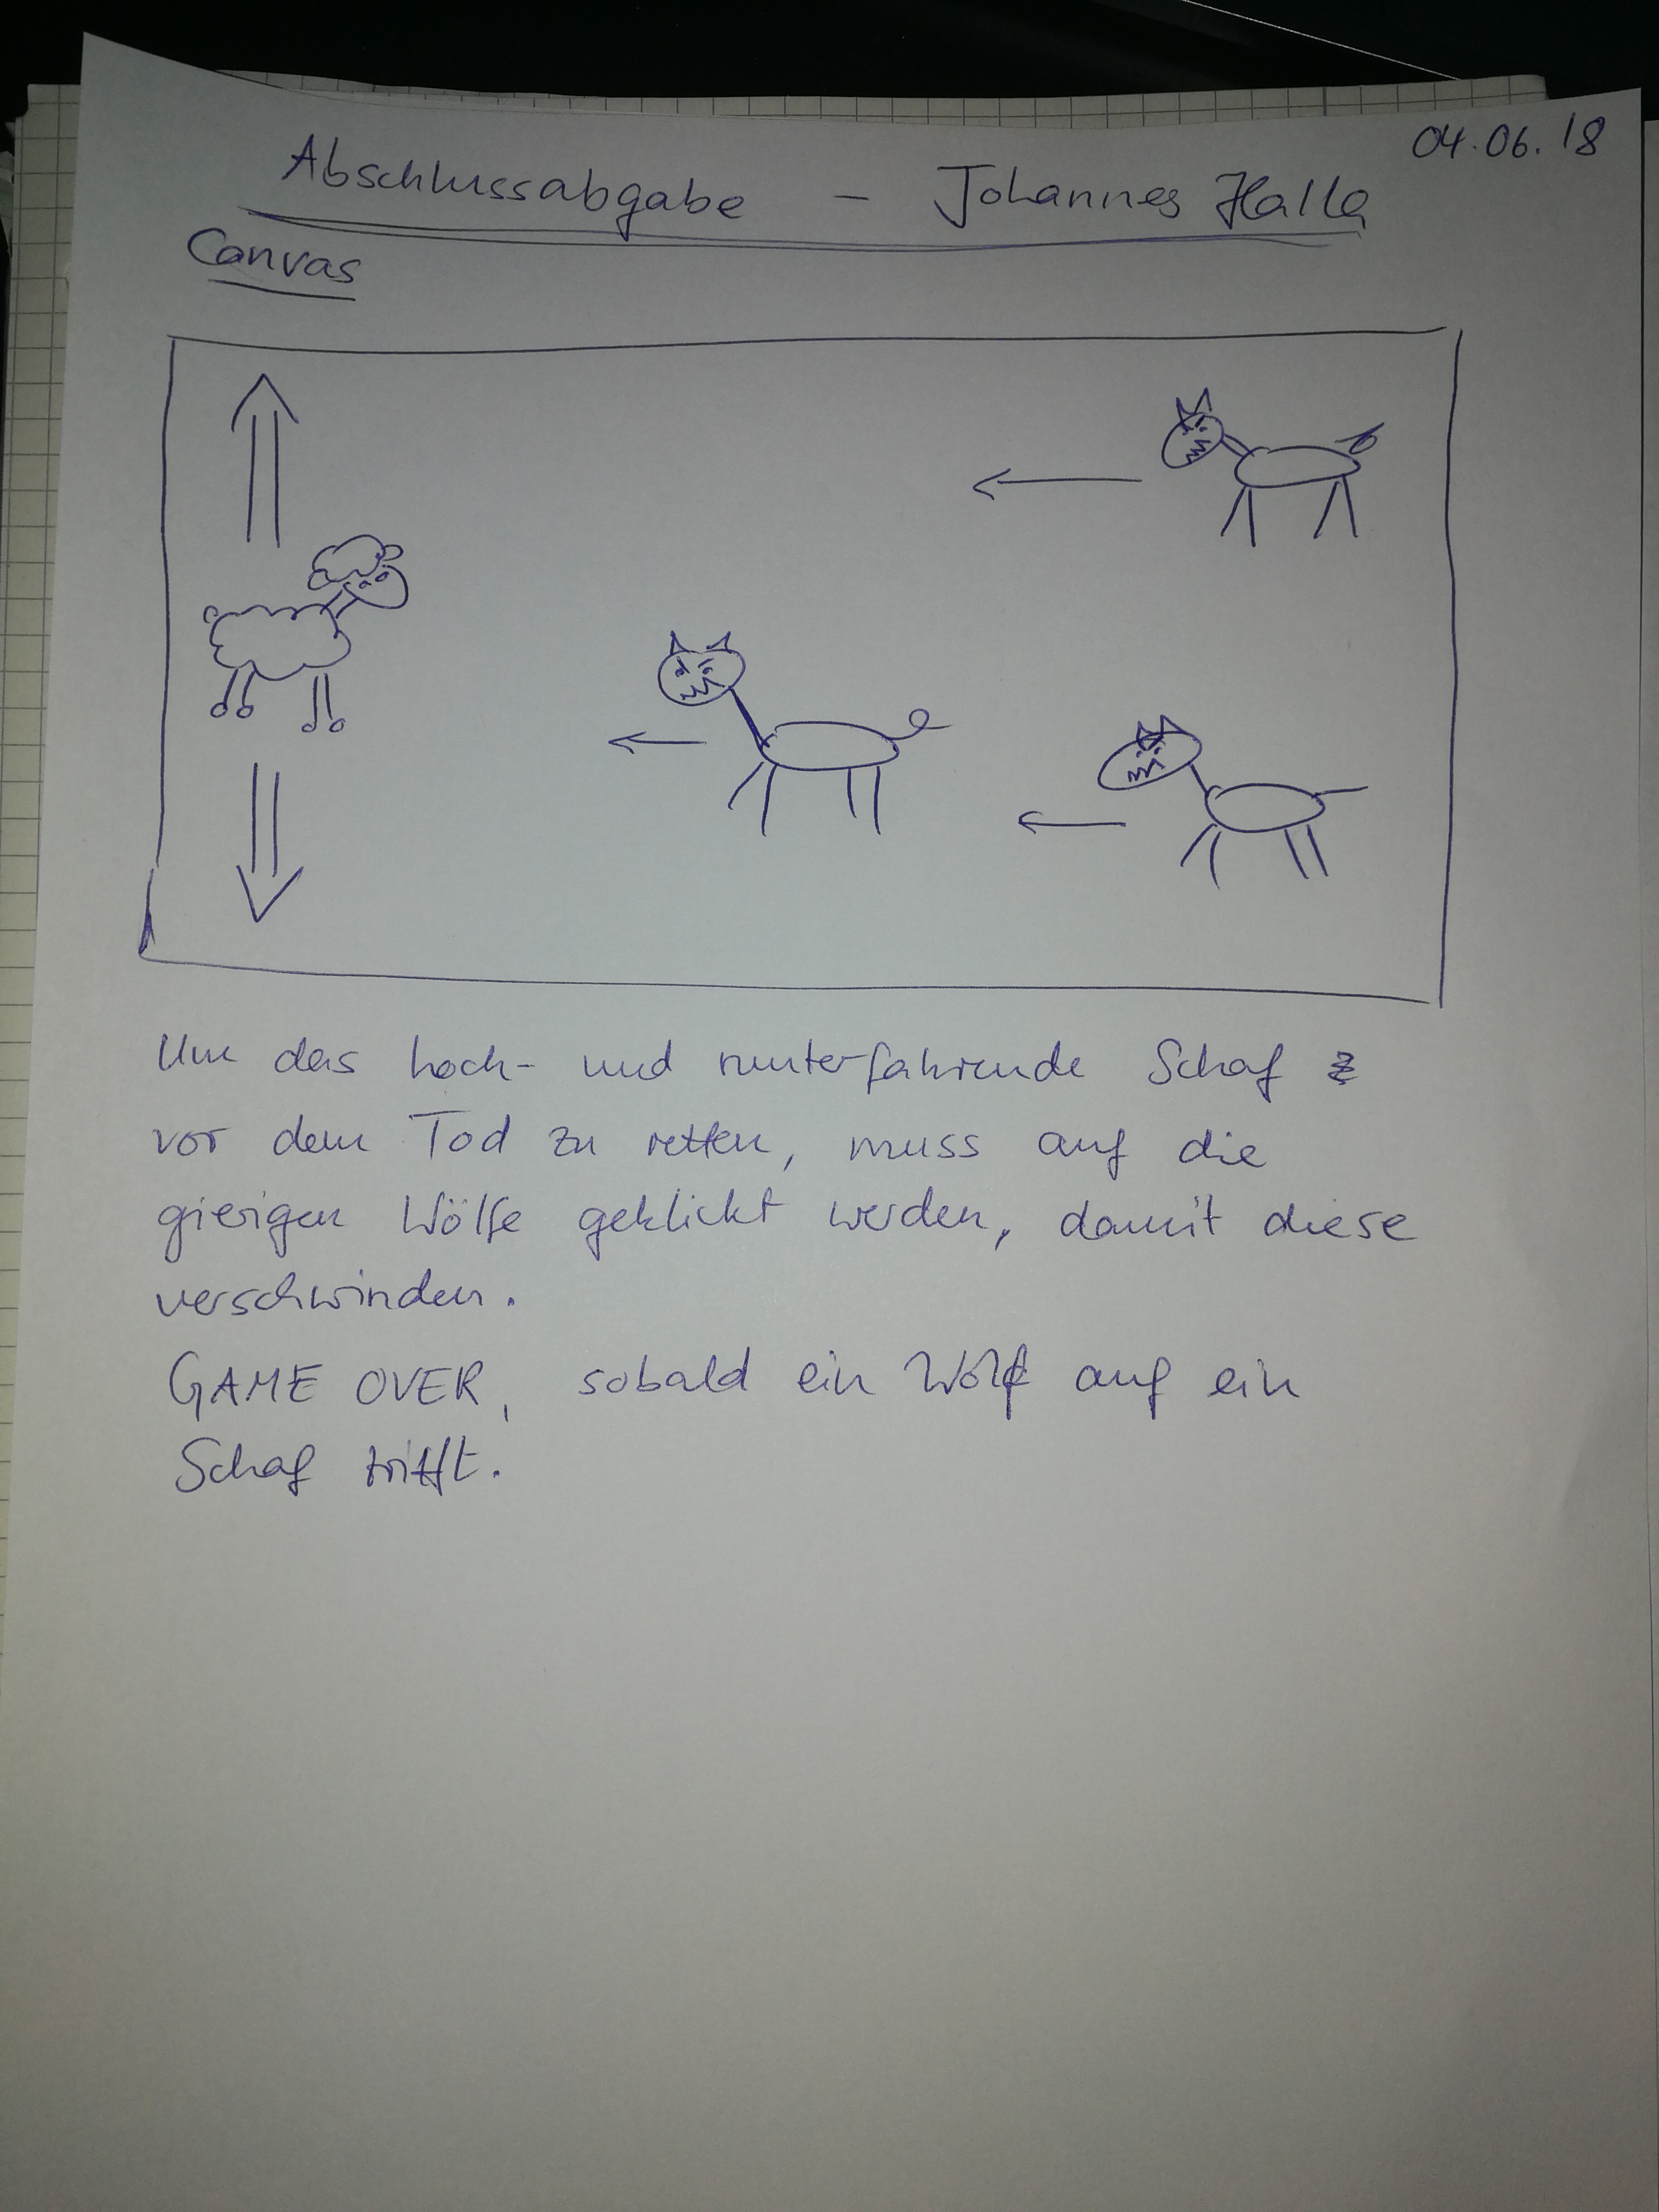 04.06.18
Abschlussabgabe – Johannes Halla
Canvas
Um das hoch- und runterfahrende Schaf
vor dem Tod zu retten, muss auf die
gierigen Wölfe geklickt werden, damit diese
verschwinden.
GAME OVER, sobald ein Wolf auf ein
Schaf trifft.